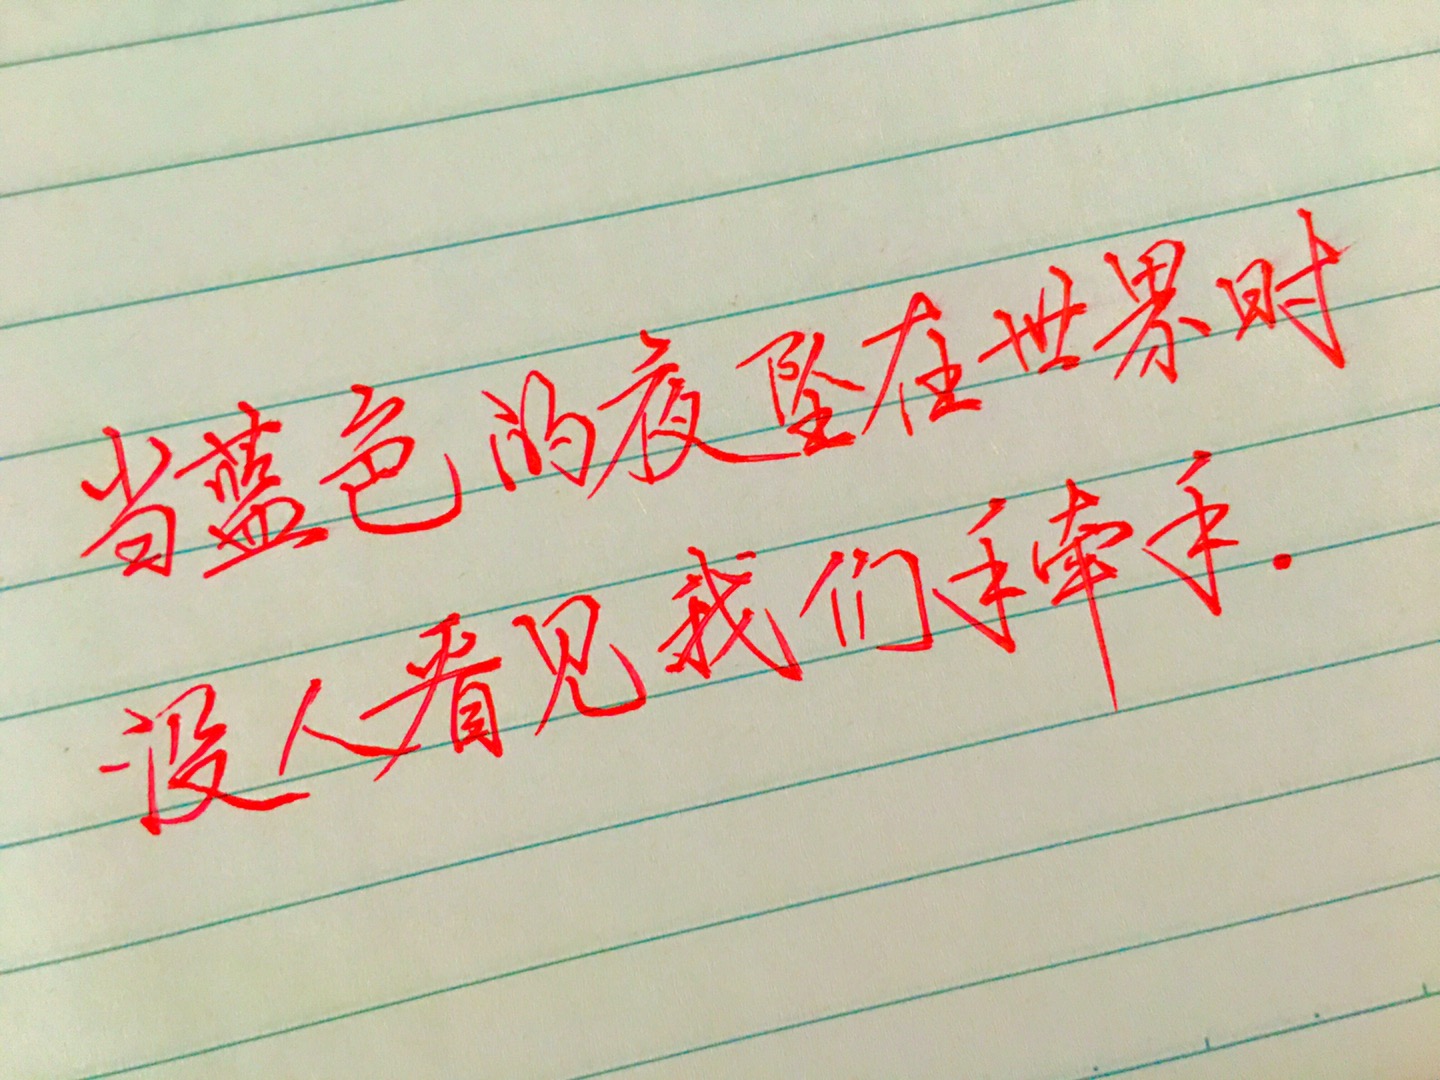 当蓝色的夜坠在世界时
没人看见我们手牵手.